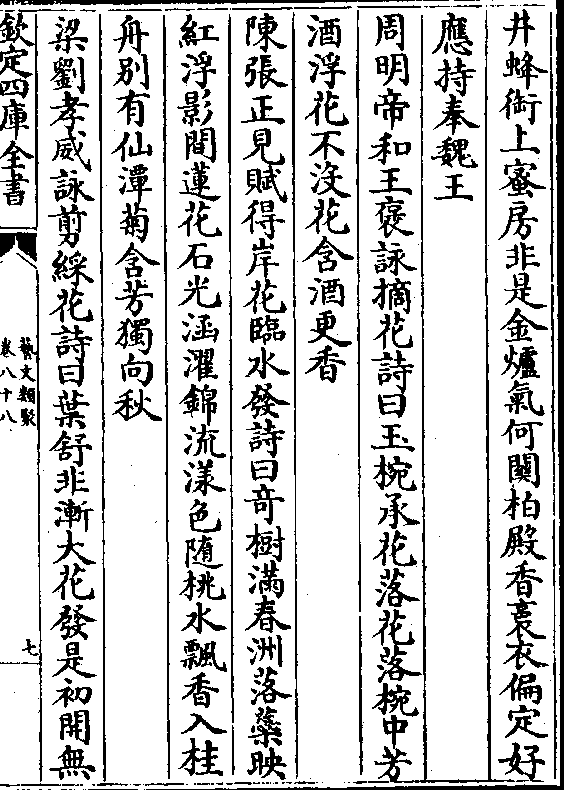 井蜂銜上蜜房非是金爐氣何關柏殿香裛衣偏定好
應持奉魏王
周明帝和王褒詠摘花詩曰玉椀承花落花落椀中芳
酒浮花不没花含酒更香
陳張正見賦得岸花臨水發詩曰竒樹滿春洲落蘂映
紅浮影間蓮花石光涵濯錦流漾色随桃水飄香入桂
舟别有仙潭菊含芳獨向秋
梁劉孝威詠剪綵花詩曰葉舒非漸大花發是初開無
欽定四庫全書
藝文類聚
卷八十八
七